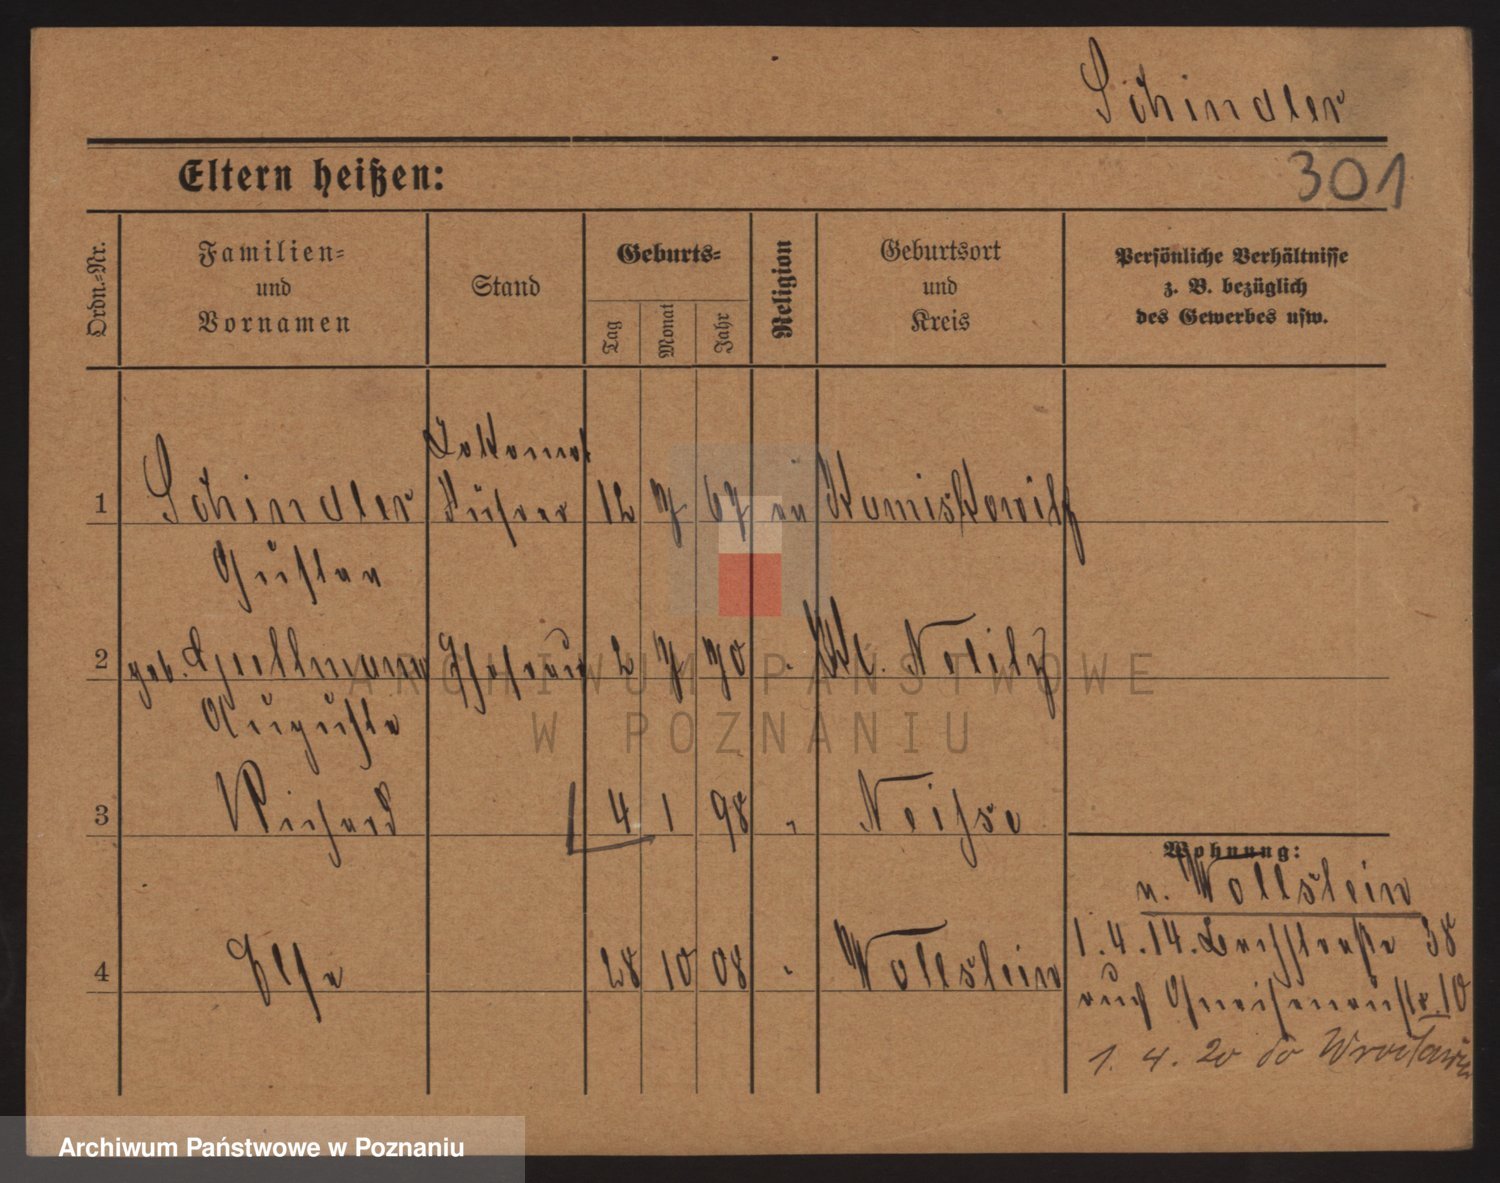 Schindler
301
Eltern heißen:
Ordn.-Nr.
Familien-
und
Vornamen
Stand
Geburts-
Tag
Monat
Jahr
Religion
Geburtsort
und
Kreis
Persönliche Verhältnisse
z. B. bezüglich
des Gewerbes usw.
Lokomot
1 Schindler Führer 12 7 67 ev
Gustav
2 geb. Ehefrau 2 7 70 " Kl. Neeitz
Auguste
3 Richard 4 1 98 " Neisse
Wohnung:
v. Wollstein
4 Else 28 10 08 " Wollstein
1. 4. 14. 38
auch Gneisenaustr. 10
1. 4. 20 do Wrocławia
ARCHIWUM PAŃSTWOWE
W POZNANIU
Archiwum Państwowe w Poznaniu